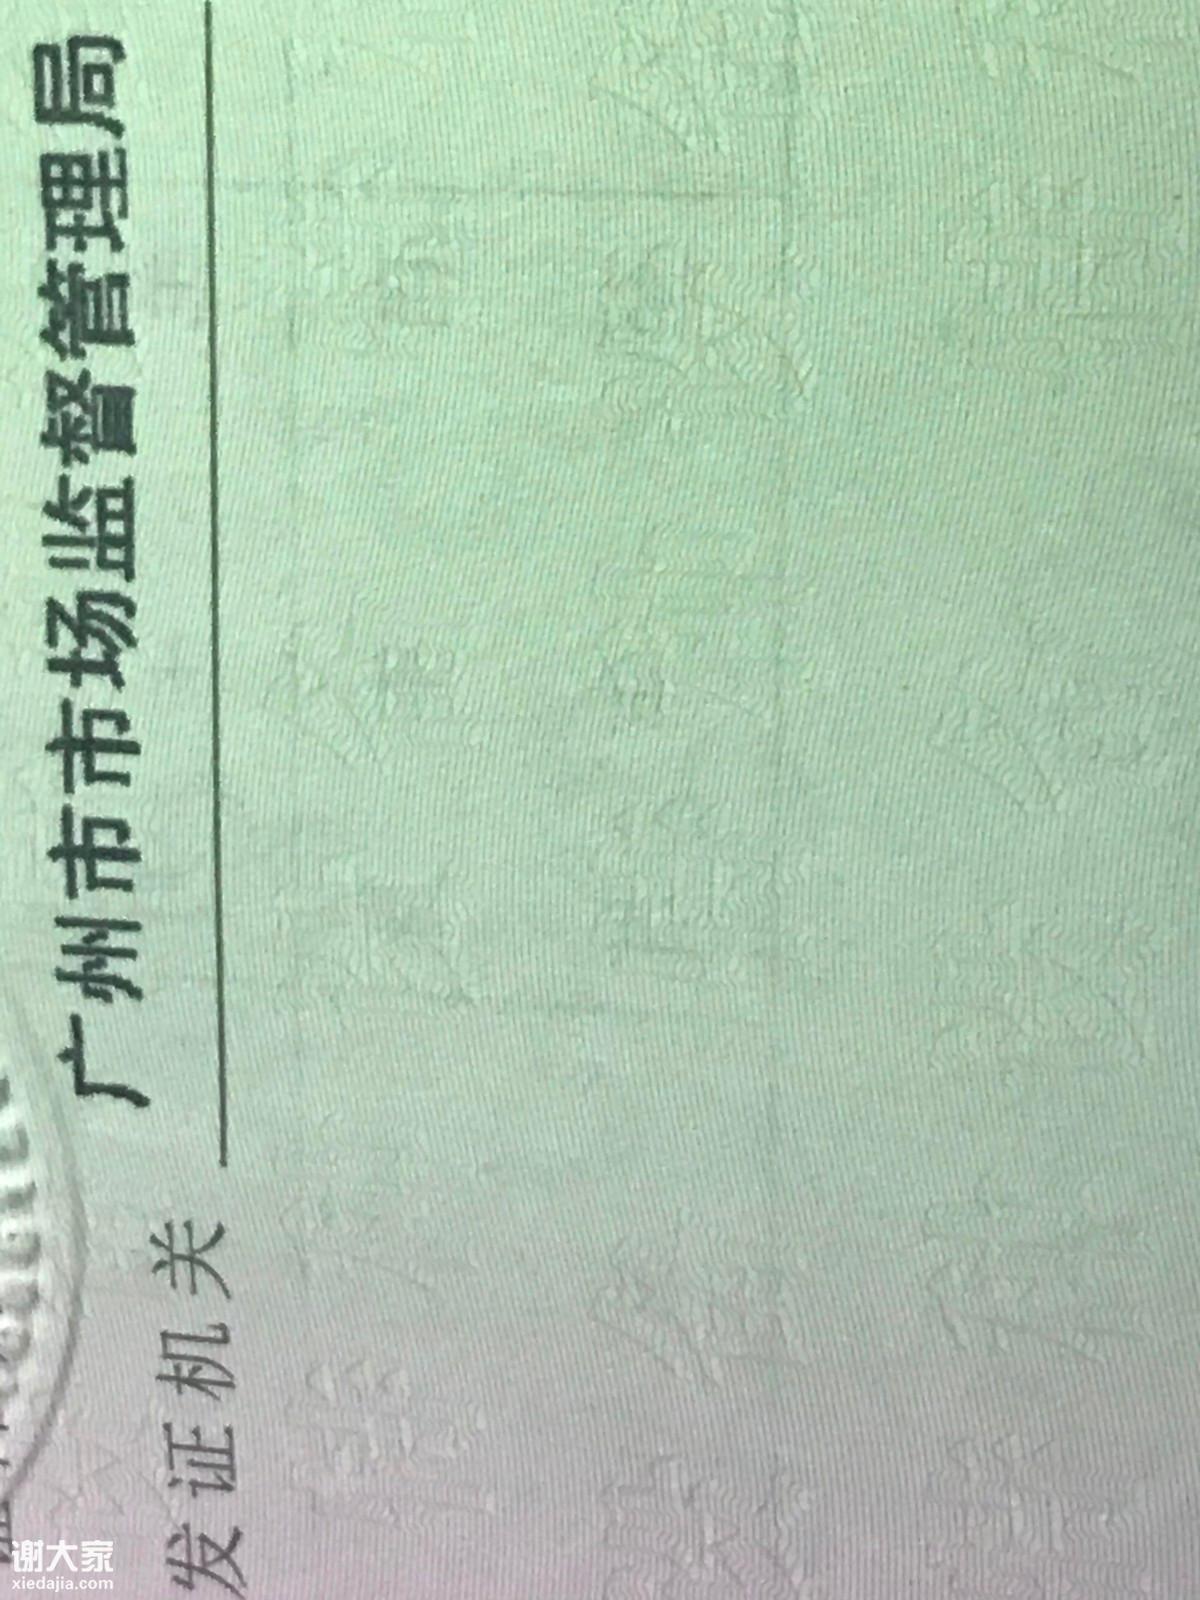 发证机关 广州市市场监督管理局
谢大家
xiedajia.com